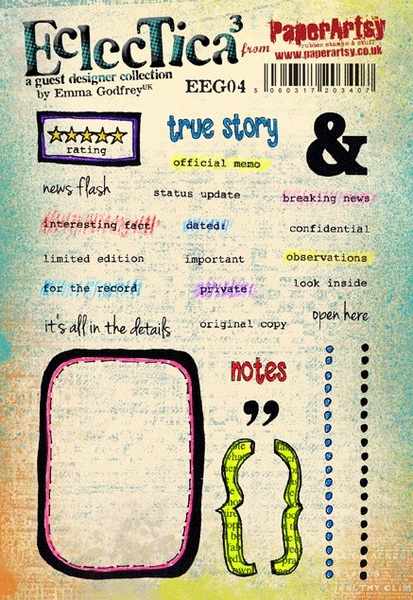 EclecTica³ from PaperArtsy
rubber stamps & stuff
www.paperartsy.co.uk
a guest designer collection
by Emma Godfrey UK
EEG04
5 060317 203407
rating
true story
&
official memo
news flash
status update
breaking news
interesting fact
dated:
confidential
limited edition
important
observations
for the record
private
look inside
it's all in the details
original copy
open here
notes
”
{ }